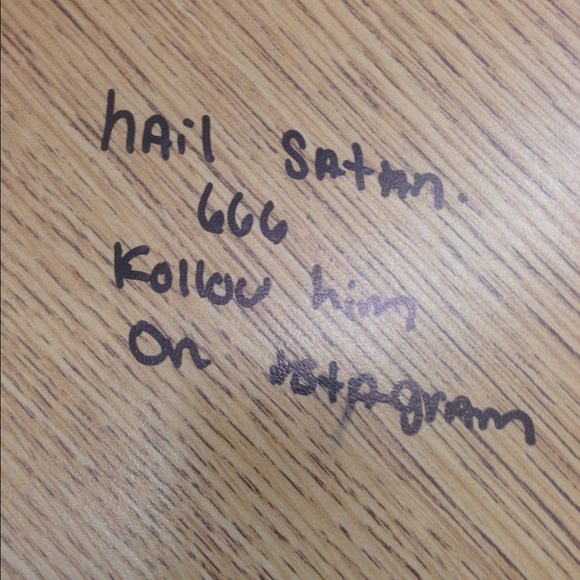 hAil SAtAn.
666
Kollow him
On nstAgrAm